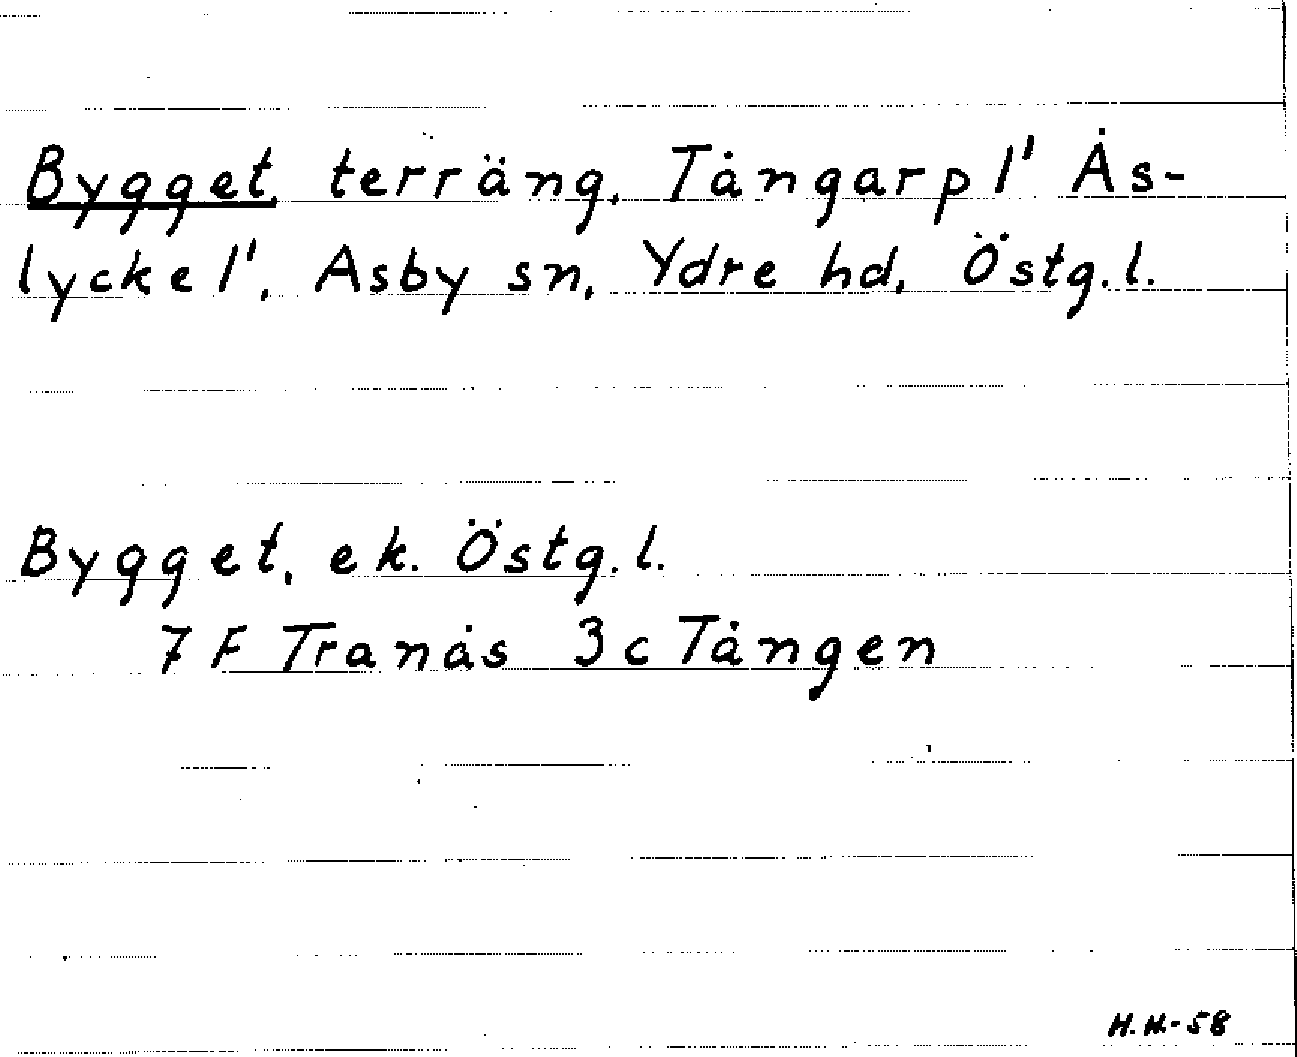 Bygget, terräng, Tångarp 1' Ås-
lycke 1', Asby sn, Ydre hd, Östg.l.
Bygget, ek. Östg.l.
7 F Tranås 3c Tången
H.H.-58